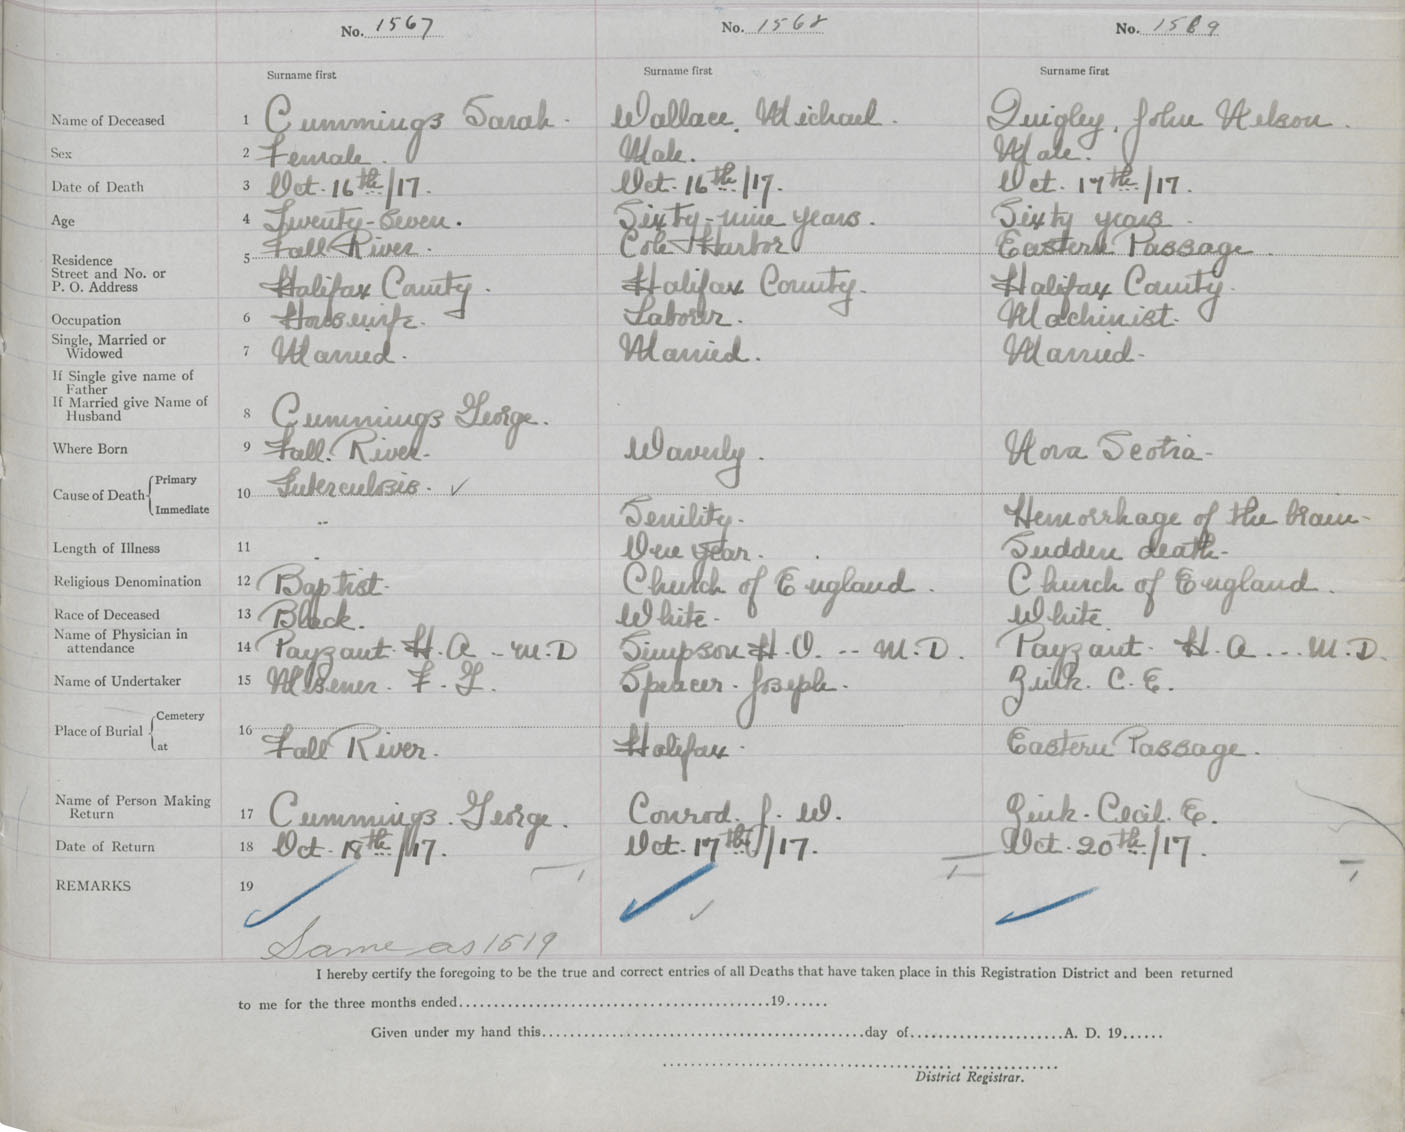 No. 1567 No. 1568 No. 1569
Surname first Surname first Surname first
Name of Deceased 1 Cummings Sarah. Wallace, Michael. Quigley, John Nelson.
Sex 2 Female. Male. Male.
Date of Death 3 Oct. 16th/17. Oct. 16th/17. Oct. 17th/17.
Age 4 Twenty-seven. Sixty-nine years. Sixty years.
Fall River. Cole Harbor Eastern Passage
Residence 5
Street and No. or
P. O. Address Halifax County. Halifax County. Halifax County.
Occupation 6 Housewife. Laborer. Machinist.
Single, Married or
Widowed 7 Married. Married. Married-
If Single give name of
Father
If Married give Name of
Husband 8 Cummings George.
Where Born 9 Fall River- Waverly. Nova Scotia-
Cause of Death Primary 10 Tuberculosis. ✓
Immediate Senility- Hemorrhage of the brain-
Length of Illness 11 One year. Sudden death-
Religious Denomination 12 Baptist- Church of England. Church of England.
Race of Deceased 13 Black. White- White
Name of Physician in
attendance 14 Payzant. H. A -- M.D Simpson H. O. -- M.D. Payzant. H. A --- M.D.
Name of Undertaker 15 F. Spencer. Joseph. Zink. C. E.
Place of Burial Cemetery 16
at Fall River. Halifax. Eastern Passage.
Name of Person Making
Return 17 Cummings. George. Conrod. J. W. Zink. Cecil. E.
Date of Return 18 Oct. 18th/17. Oct. 17th/17. Oct. 20th/17.
REMARKS 19
Same as 1519
I hereby certify the foregoing to be the true and correct entries of all Deaths that have taken place in this Registration District and been returned
to me for the three months ended........................................19......
Given under my hand this........................................day of....................A. D. 19......
District Registrar.